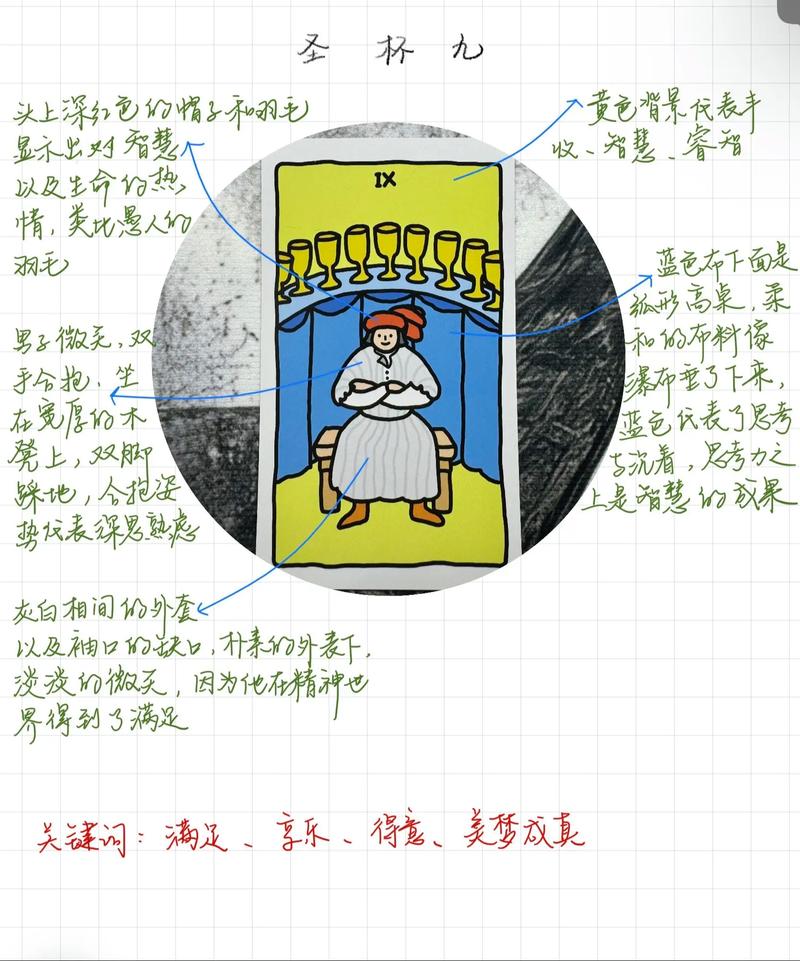 圣杯九
头上深红色的帽子和羽毛
显示出对智慧
以及生命的热
情，类比愚人的
羽毛
黄色背景代表丰
收、智慧、睿智
IX
蓝色布下面是
弧形高桌，柔
和的布料像
瀑布垂了下来，
蓝色代表了思考
与沉着，思考力之
上是智慧的成果
男子微笑，双
手合抱、坐
在宽厚的木
凳上，双脚
踩地，合抱姿
势代表深思熟虑
灰白相间的外套
以及袖口的缺口，朴素的外表下，
淡淡的微笑，因为他在精神世
界得到了满足
关键词：满足、享乐、得意、美梦成真